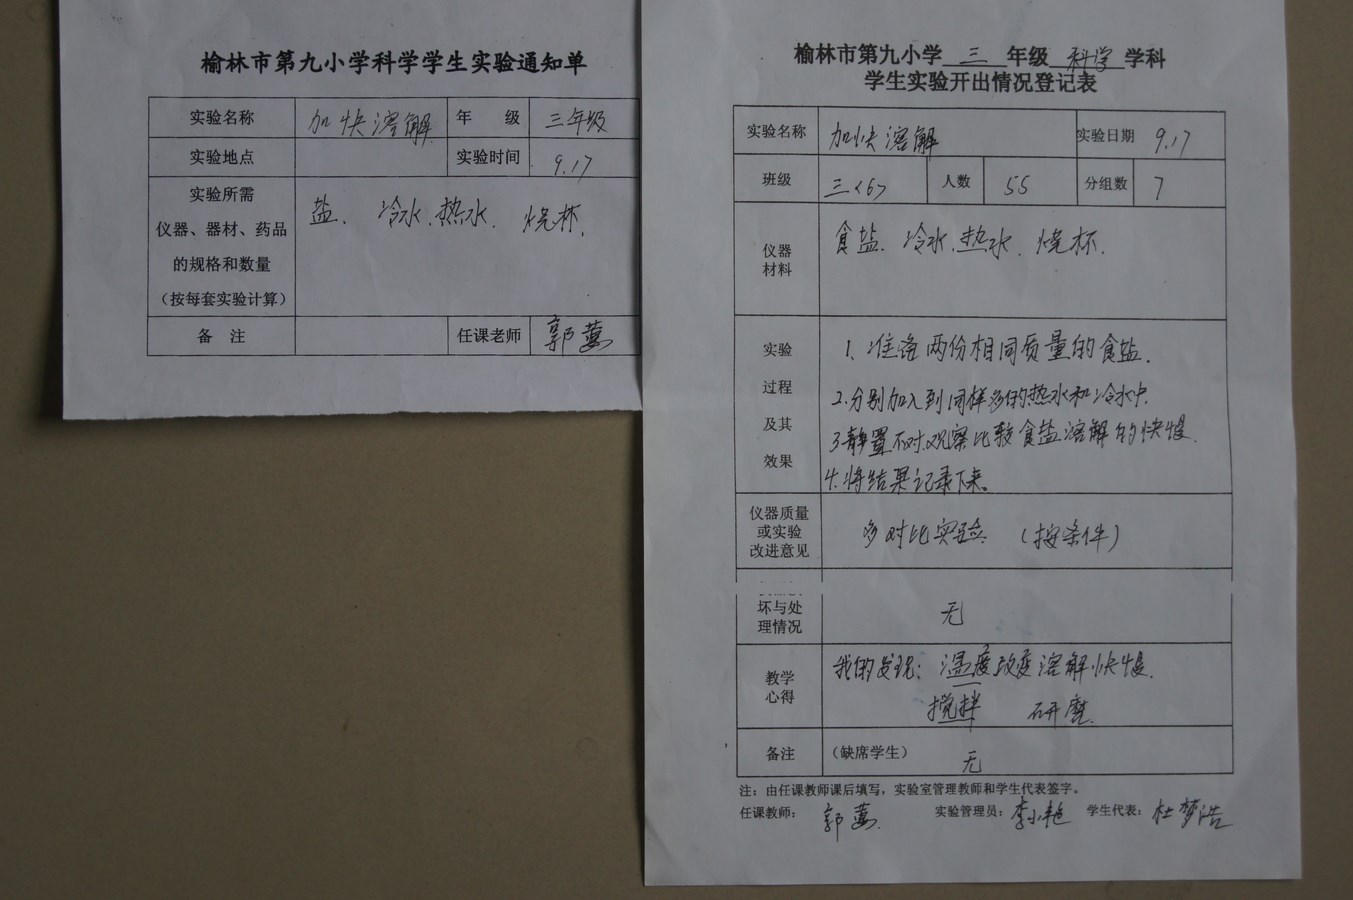 榆林市第九小学科学学生实验通知单
实验名称 加快溶解 年 级 三年级
实验地点 实验时间 9.17
实验所需
仪器、器材、药品
的规格和数量
（按每套实验计算）
盐、冷水、热水、烧杯.
备 注 任课老师 郭
榆林市第九小学 三 年级 科学 学科
学生实验开出情况登记表
实验名称 加快溶解 实验日期 9.17
班级 三<6> 人数 55 分组数 7
仪器
材料
食盐、冷水、热水、烧杯.
实验
过程
及其
效果
1、准备两份相同质量的食盐.
2.分别加入到同样多的热水和冷水中.
3静置不对.观察比较食盐溶解的快慢.
4.将结果记录下来。
仪器质量
或实验
改进意见
多对比实验 （按条件）
坏与处
理情况
无
教学
心得
我的发现：温度改变溶解快慢.
搅拌 研磨.
备注 （缺席学生） 无
注：由任课教师课后填写，实验室管理教师和学生代表签字。
任课教师： 郭 实验管理员：李小艳 学生代表：杜梦浩